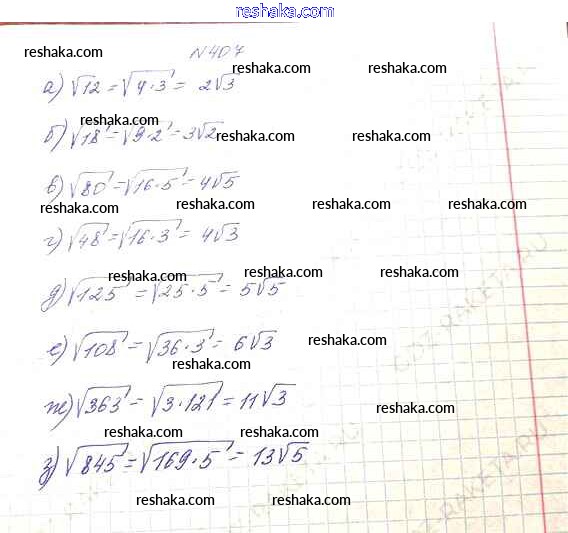 reshaka.com
N 407
reshaka.com
reshaka.com reshaka.com
а) √12 = √4·3 = 2√3
reshaka.com
б) √18 = √9·2 = 3√2
reshaka.com reshaka.com
в) √80 = √16·5 = 4√5
reshaka.com reshaka.com reshaka.com reshaka.com
г) √48 = √16·3 = 4√3
reshaka.com reshaka.com reshaka.com
д) √125 = √25·5 = 5√5
е) √108 = √36·3 = 6√3
reshaka.com
reshaka.com
ж) √363 = √3·121 = 11√3
reshaka.com
reshaka.com reshaka.com
з) √845 = √169·5 = 13√5
reshaka.com reshaka.com reshaka.com